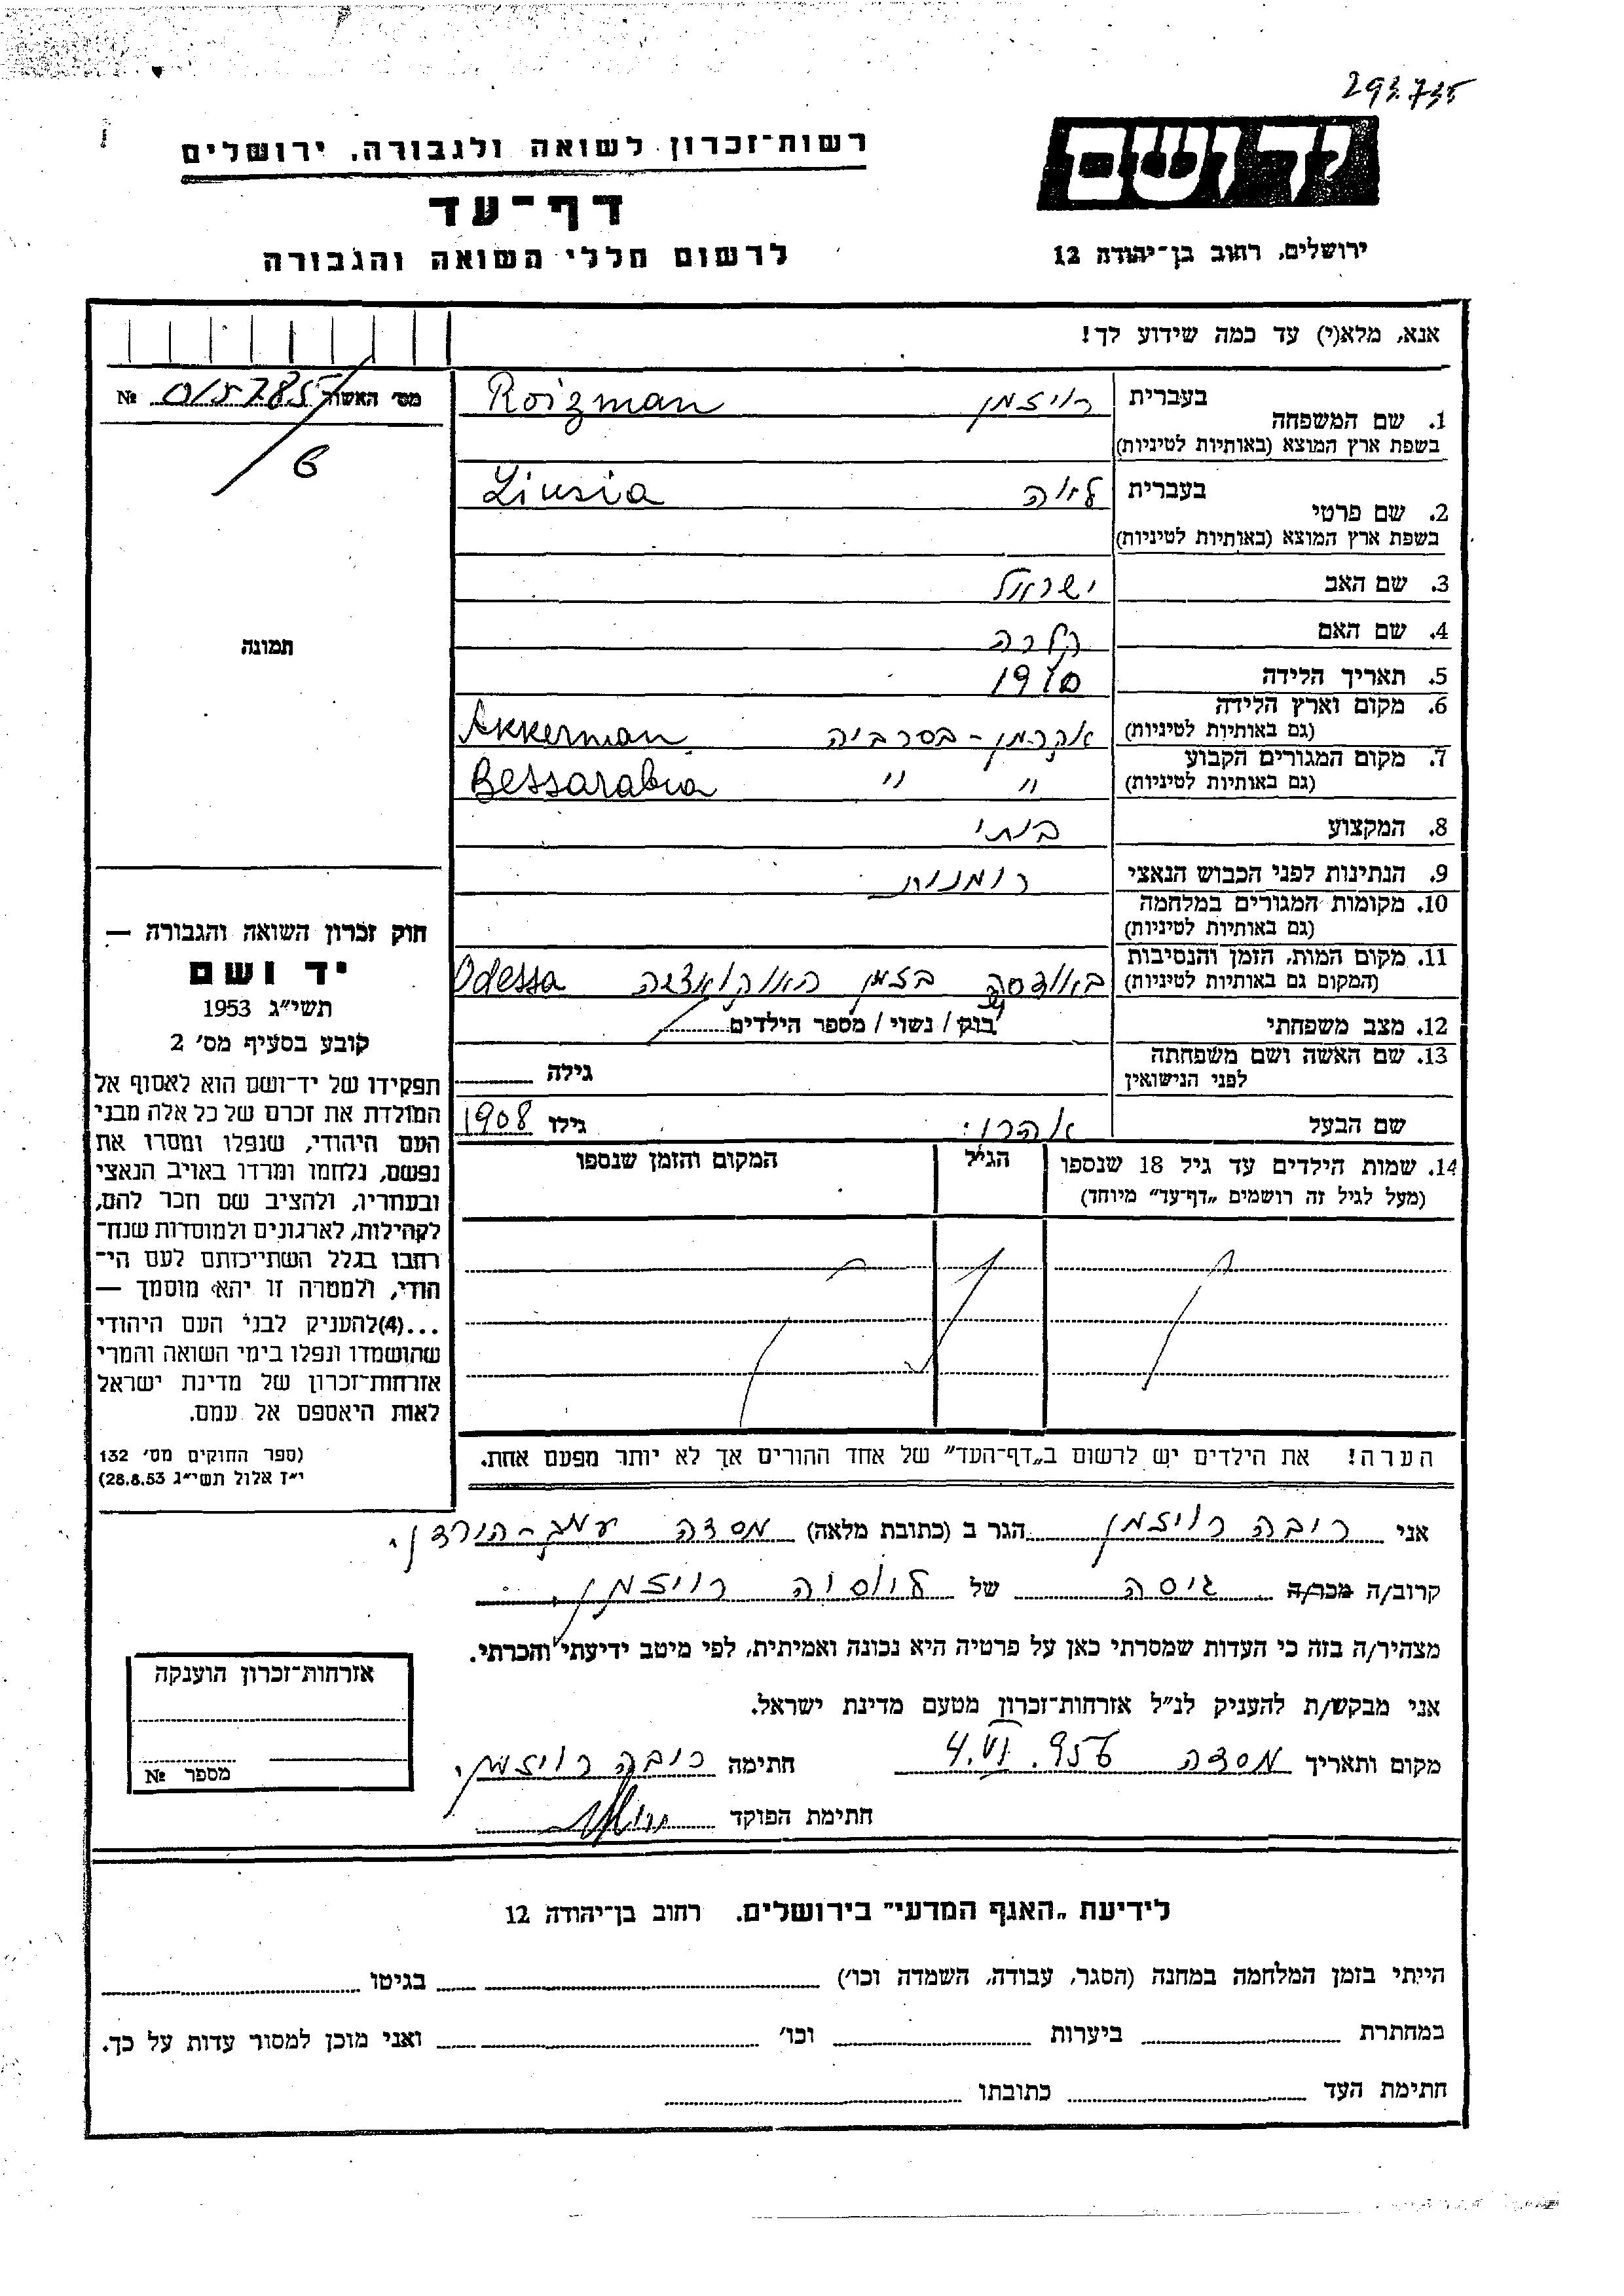 293735
יד ושם
רשות־זכרון לשואה ולגבורה, ירושלים
דף־עד
לרשום חללי השואה והגבורה
ירושלים, רחוב בן־יהודה 12
אנא, מלא(י) עד כמה שידוע לך!
מס׳ האשור 015785 №
6
תמונה
1. שם המשפחה בעברית רויזמן Roizman
בשפת ארץ המוצא (באותיות לטיניות)
2. שם פרטי בעברית Liusia
בשפת ארץ המוצא (באותיות לטיניות)
3. שם האב ישראל
4. שם האם קלרה
5. תאריך הלידה 1910
6. מקום וארץ הלידה (גם באותיות לטיניות) אקרמן - בסרביה Akkerman
7. מקום המגורים הקבוע (גם באותיות לטיניות) " " Bessarabia
8. המקצוע ביתי
9. הנתינות לפני הכבוש הנאצי רומנית
10. מקומות המגורים במלחמה (גם באותיות לטיניות)
11. מקום המות, הזמן והנסיבות (המקום גם באותיות לטיניות) באודסה בזמן האוקואציה Odessa
12. מצב משפחתי רוק / נשוי / מספר הילדים
13. שם האשה ושם משפחתה לפני הנישואין גילה
שם הבעל אהרון גילו 1908
14. שמות הילדים עד גיל 18 שנספו הגיל המקום והזמן שנספו
(מעל לגיל זה רושמים „דף־עד״ מיוחד)
הערה! את הילדים יש לרשום ב„דף־העד״ של אחד ההורים אך לא יותר מפעם אחת.
חוק זכרון השואה והגבורה —
יד ושם
תשי״ג 1953
קובע בסעיף מס׳ 2
תפקידו של יד־ושם הוא לאסוף אל
המולדת את זכרם של כל אלה מבני
העם היהודי, שנפלו ומסרו את
נפשם, נלחמו ומרדו באויב הנאצי
ובעוזריו, ולהציב שם וזכר להם,
לקהילות, לארגונים ולמוסדות שנח־
רבו בגלל השתייכותם לעם הי־
הודי, ולמטרה זו יהא מוסמך —
...(4)להעניק לבני העם היהודי
שהושמדו ונפלו בימי השואה והמרי
אזרחות־זכרון של מדינת ישראל
לאות היאספם אל עמם.
(ספר החוקים מס׳ 132
י״ז אלול תשי״ג 28.8.53)
אני ריבה רויזמן הגר ב (כתובת מלאה) מסדה עמק-הירדן.
קרוב/ה מכר/ה גיסה של ליוסיה רויזמן
מצהיר/ה בזה כי העדות שמסרתי כאן על פרטיה היא נכונה ואמיתית, לפי מיטב ידיעתי והכרתי.
אני מבקש/ת להעניק לנ״ל אזרחות־זכרון מטעם מדינת ישראל.
מקום ותאריך מסדה 4.VI.956 חתימה ריבה רויזמן.
חתימת הפוקד
אזרחות־זכרון הוענקה
מספר №
לידיעת „האגף המדעי״ בירושלים. רחוב בן־יהודה 12
הייתי בזמן המלחמה במחנה (הסגר, עבודה, השמדה וכו׳) בגיטו
במחתרת ביערות וכו׳ ואני מוכן למסור עדות על כך.
חתימת העד כתובתו